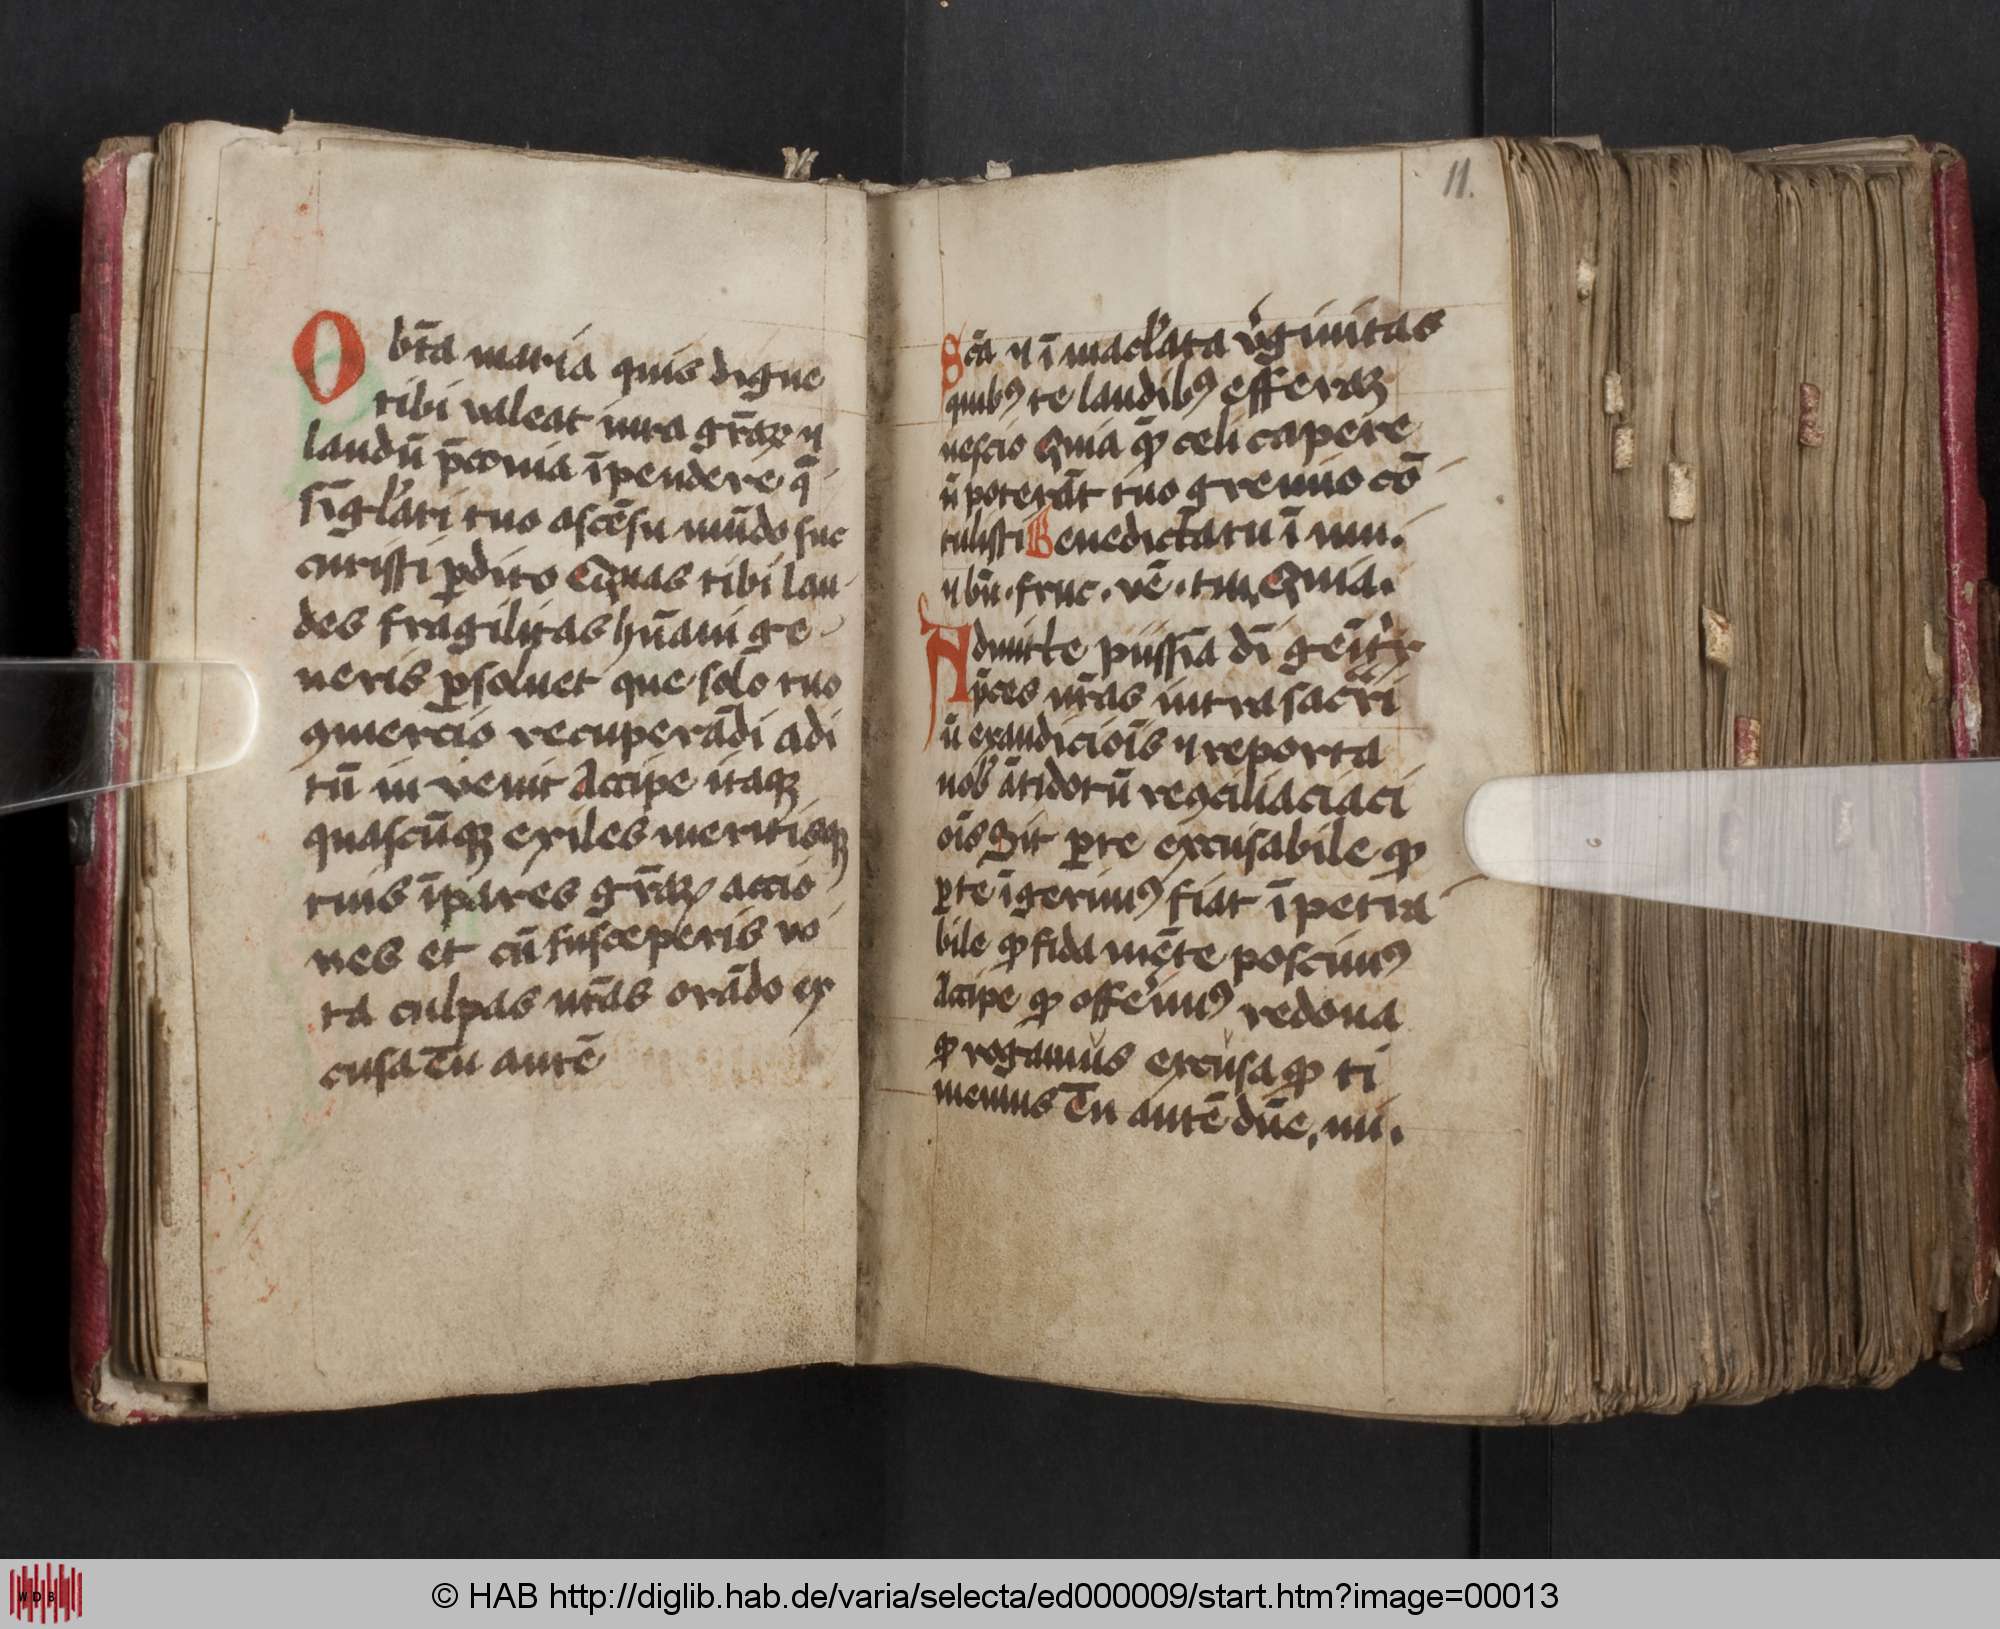 O bt̄a maria quis digne
tibi valeat iura gr̄aꝝ ⁊
laudū p̄conia īpendere q̄
sīgl'ari tuo ascēsu mūdo suc
curristi ꝑdito Quas tibi lau
des fragilitas hūani ge
neris ꝑsoluet que solo tuo
ꝯmercio recuperādi adi
tū in venit Accipe itaqꝫ
quascūqꝫ exiles meritisqꝫ
tuis īpares gr̄aꝝ accio
nes et cū susceperis vo
ta culpas nr̄as orādo ex
cusa Tu autē
11.
Scā ⁊ īmacl'ata v'ginitas
quibꝰ te laudibꝰ efferaꝫ
nescio Quia qͦ celi capere
n̄ poterāt tuo gremio cō
tulisti Benedicta tu ī mu.
⁊ bn̄. fruc. vē. tui. Quia.
Admitte pijssīa dī geītʼx
p̄ces nr̄as intra sacrʼi
ū exaudiciōis ⁊ reporta
nob' ātidotū reꝯciliaciaci
ōis Sit ꝑ te excusabile qͦ
ꝑ te īgerimꝰ fiat īpetra
bile qͦ fida mēte poscimꝰ
Accipe qͦ offe'imꝰ redona
qͦ rogamus excusa qͦ ti
memus Tu autē dn̄e. mi.
WDB
© HAB http://diglib.hab.de/varia/selecta/ed000009/start.htm?image=00013